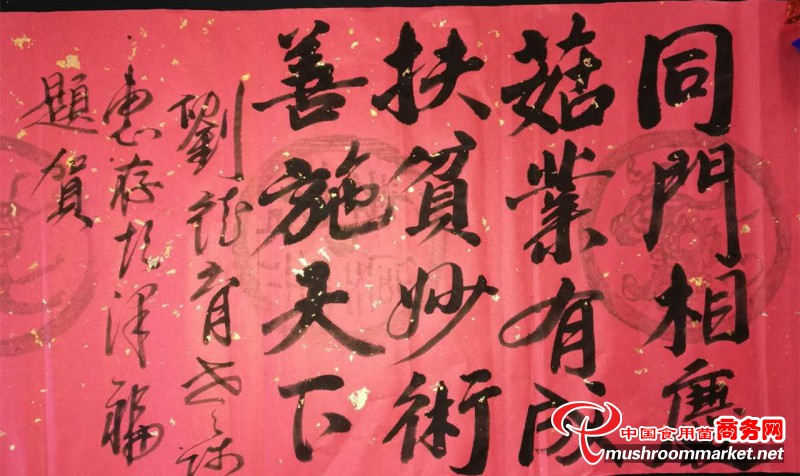 同門相慶
菇業有成
扶貧妙術
善施天下
劉 老師
惠存 澤福
題賀
中国食用菌商务网
mushroommarket.net